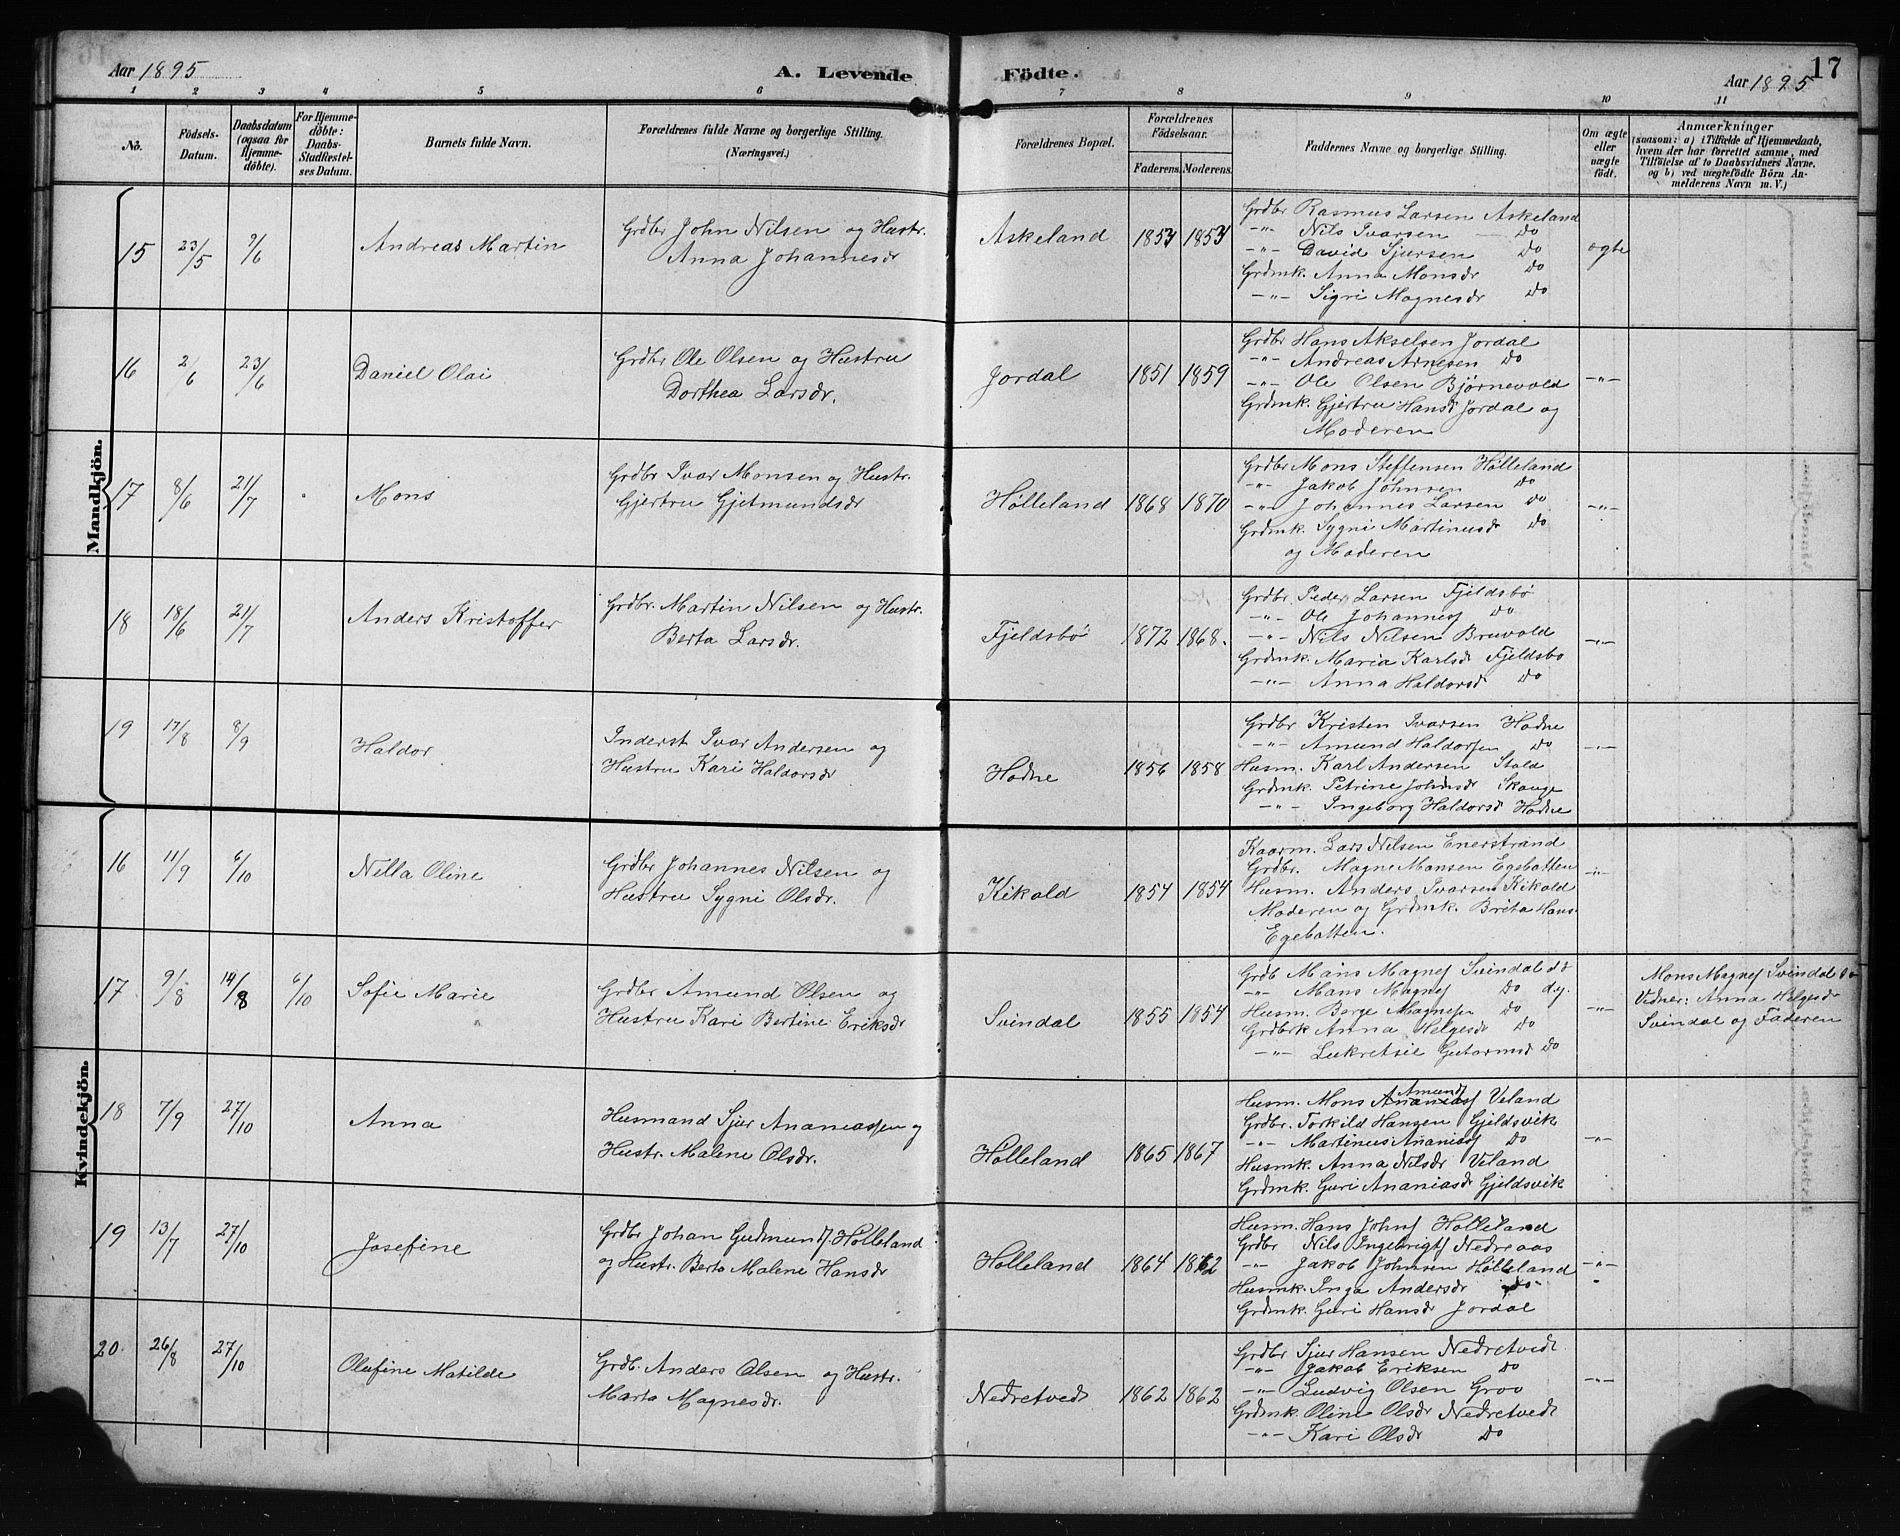 Aar 1895
A. Levende Födte.
Aar 1895
17
1 2 3 4 5 6 7 8 9 10 11
No.
Födsels-Datum.
Daabsdatum (ogsaa for Hjemmedöbte).
For Hjemmedöbte: Daabs-Stadfæstelses Datum.
Barnets fulde Navn.
Forældrenes fulde Navne og borgerlige Stilling.
(Næringsvei.)
Forældrenes Bopæl.
Forældrenes Födselsaar.
Faderens. Moderens.
Faddernes Navne og borgerlige Stilling.
Om ægte eller uægte födt.
Anmærkninger
(saasom: a) i Tilfælde af Hjemmedaab,
hvem der har forrettet samme, med
Tilföielse af to Daabsvidners Navne,
og b) ved uægtefödte Börn An-
melderens Navn m. V.)
Mandkjön.
15 23/5 9/6 Andreas Martin
Grdbr John Nilsen og Hustr.
Anna Johannesdr
Askeland 1853 1853
Grdbr Rasmus Larsen Askeland
-"- Nils Ivarsen Do
-"- David Sjursen Do
Grdmk. Anna Monsdr Do
-"- Sigri Magnesdr Do
ægte
16 2/6 23/6 Daniel Olai
Grdbr Ole Olsen og Hustru
Dorthea Larsdr.
Jordal 1851 1859
Grdbr Hans Akselsen Jordal
-"- Andreas Arnesen Do
-"- Ole Olsen Bjørnevold
Grdmk. Gjertru Hansd Jordal og
Moderen
-"-
17 8/6 21/7 Mons
Grdbr Ivar Monsen og Hustr.
Gjertru Gjetmundsdr
Hølleland 1868 1870
Grdbr Mons Steffensen Hølleland
-"- Jakob Johnsen Do
-"- Johannes Larsen Do
Grdmk. Sygni Martinusdr Do
og Moderen
-"-
18 18/6 21/7 Anders Kristoffer
Grdbr. Martin Nilsen og Hustr.
Berta Larsdr.
Fjeldsbø 1872 1868.
Grdbr. Peder Larsen Fjeldsbø
-"- Ole Johannesf Do
-"- Nils Nilsen Bruvold
Grdmk. Maria Karlsdr Fjeldsbo
-"- Anna Haldorsd Do
-"-
19 17/8 8/9 Haldor
Inderst Ivar Andersen og
Hustru Kari Haldorsdr
Hodne 1856 1858
Grdbr Kristen Ivarsen Hodne
-"- Amund Haldorsen Do
Husm. Karl Andersen Stold
Grdmk. Petrine Johnsdr Skauge
-"- Ingeborg Haldorsd Hodne
-"-
Kvindekjön.
16 11/9 6/10 Nella Oline
Grdbr Johannes Nilsen og
Hustru Sygni Olsdr.
Kikold 1854 1854
Kaarm. Lars Nilsen Enerstrand
Grdbr. Magne Mansen Egebotten
Husm. Anders Ivarsen Kikold
Moderen og Grdmk. Brita Hans-
Egebotten.
-"-
17 9/8 14/8 6/10 Sofie Marie
Grdbr Amund Olsen og
Hustru Kari Bertine Eriksdr
Svindal 1855 1854
Grdb Mons Magnef Svindal
-"- Mans Magnef Do d.y.
Husm. Berge Magnesen Do
Grdbrk Anna Helgesdr Do
-"- Lukretsie Gutormsd Do
-"-
Mons Magnef Svindal
Vidner: Anna Helgesdr
Svindal og Faderen
18 7/9 27/10 Anna
Husmand Sjur Ananiassen og
Hustr. Malene Olsdr.
Hølleland 1865 1867
Husm. Mons Ananiasf Amundf Veland
Grdbr. Torkild Hansen Gjeldsvik
-"- Martinus Ananiasf Do
Husmk. Anna Nilsdr Veland
Grdmk. Guri Ananiasdr Gjeldsvik
-"-
19 13/7 27/10 Josefine
Grdbr Johan Gudmundf. Hølleland
og Hustr. Berta Malene Hansdr
Hølleland 1864 1862
Husm. Hans Johnf Holleland
Grdbr Nils Ingebrigtf Nedreaas
-"- Jakob Johnsen Hølleland
Husmk. Inga Andersdr Do
Grdmk. Guri Hansdr Jordal
-"-
20. 26/8 27/10 Olufine Matilde
Grdb. Anders Olsen og Hustr.
Marta Magnesdr.
Nedretvedt 1862 1862
Grdbr Sjur Hansen Nedretvedt
-"- Jakob Eriksen Do
-"- Ludvig Olsen Grov
Grdmk. Oline Olsdr Nedretvedt
-"- Kari Olsdr Do
-"-